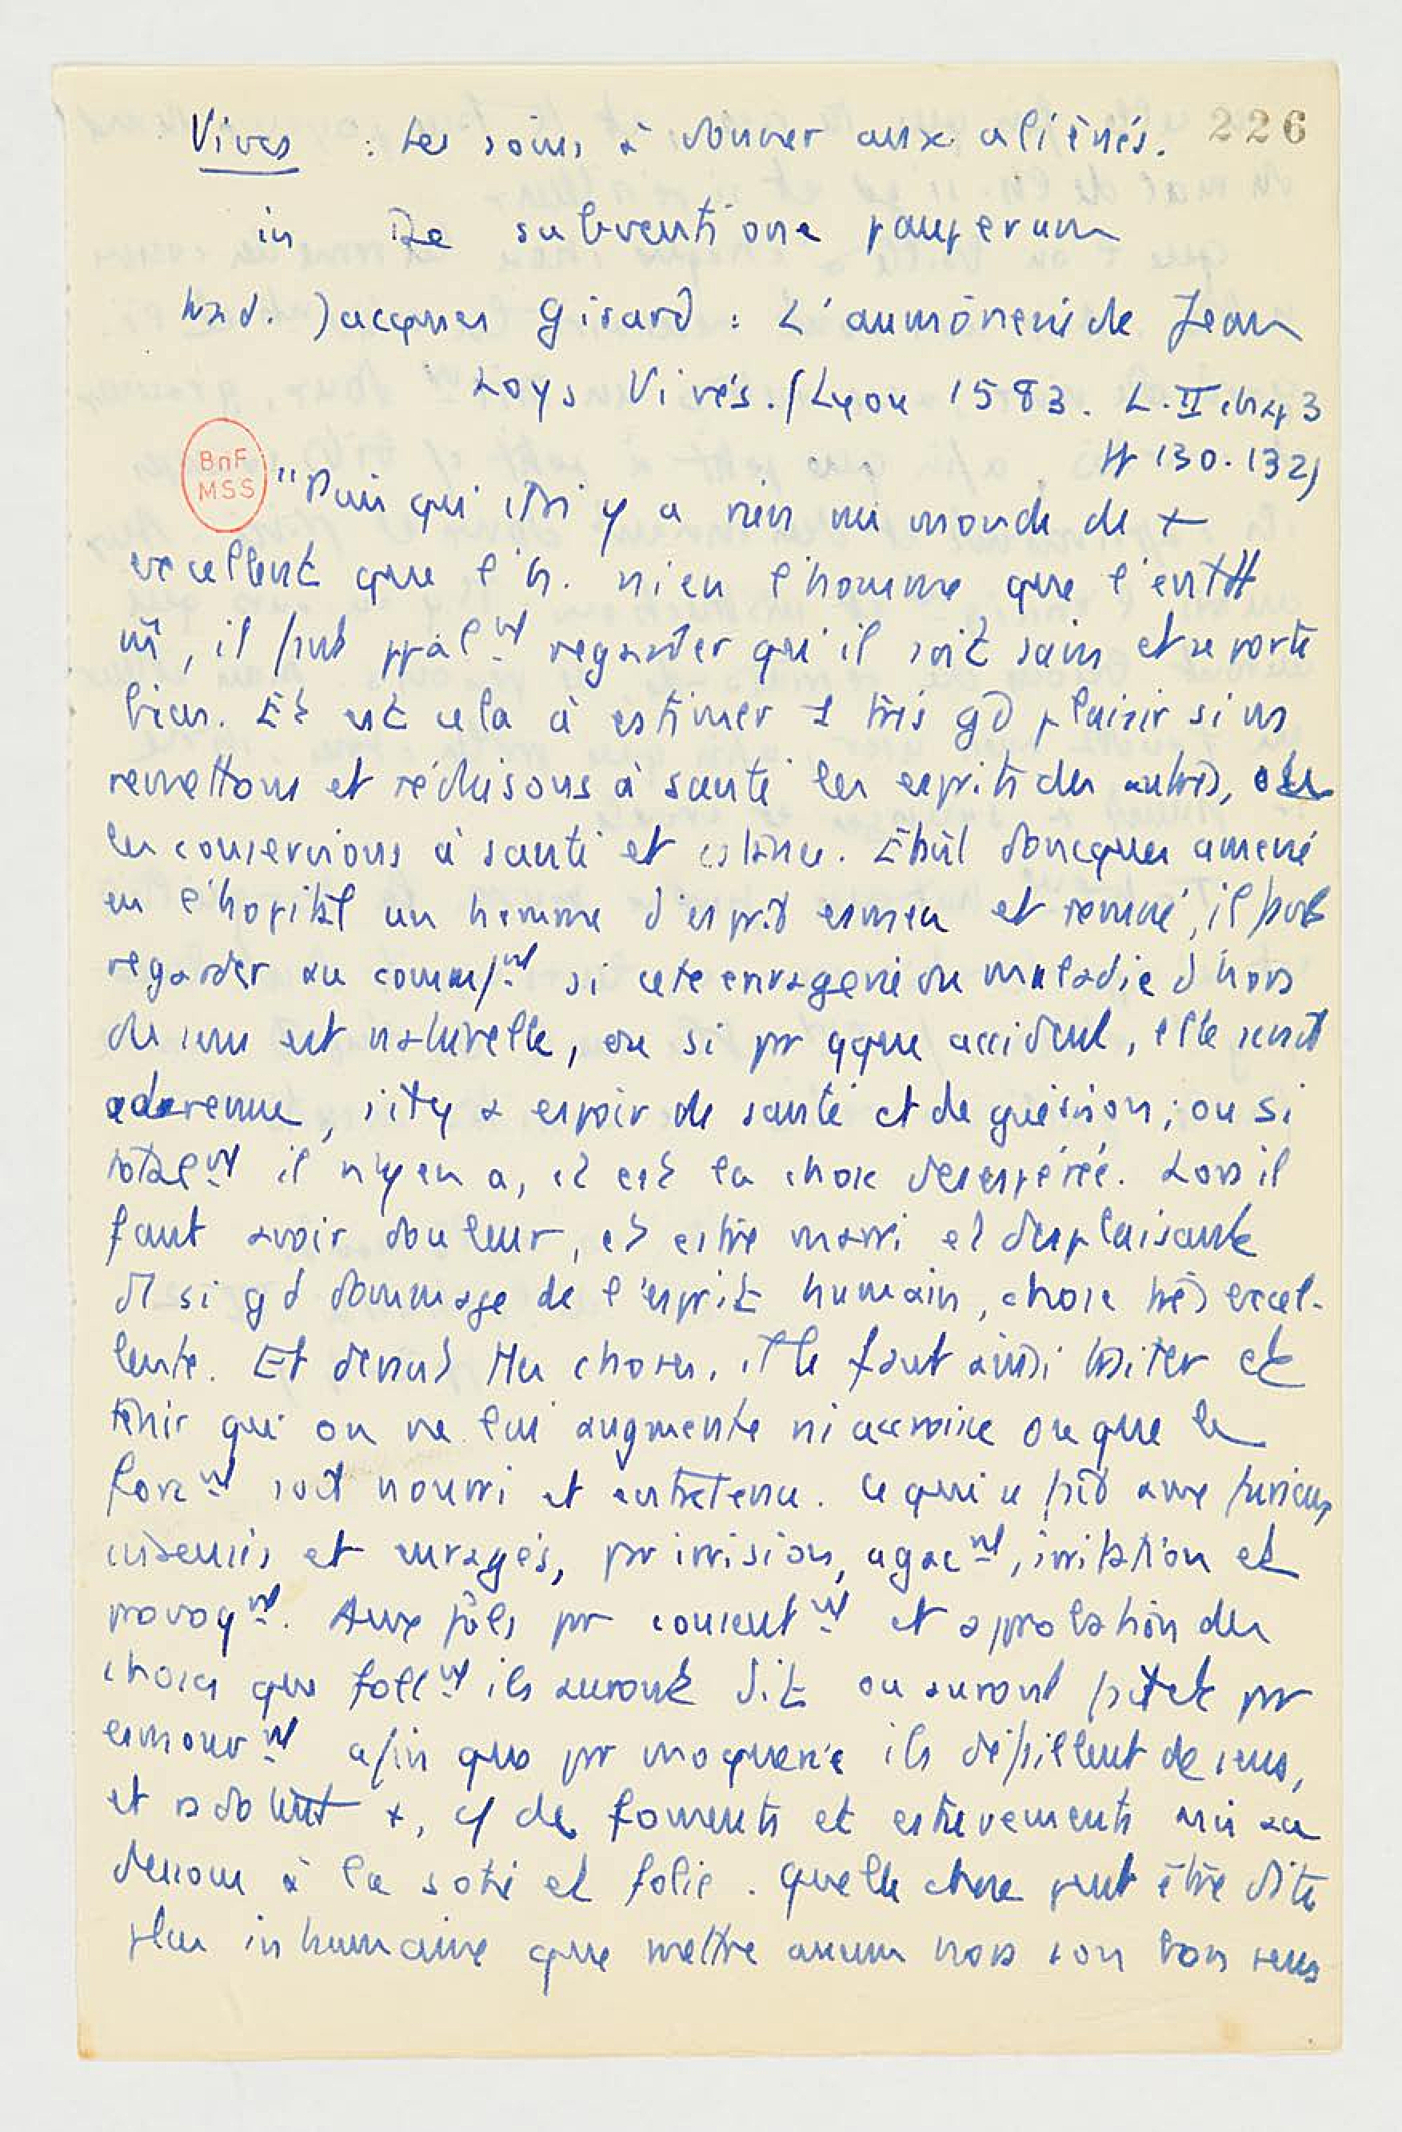 226
Vives : Les soins à donner aux aliénés.
in De subventione pauperum
trad. Jacques Girard : L'aumônerie de Jean
Loys Vivés. (Lyon 1583. L. II chap 3
pp 130-132)
BnF
MSS
"Puis qu'il n'y a rien au monde de +
excellent que l'h. ni en l'homme que l'ent
il faut ppalnt regarder qu'il soit sain et se porte
bien. Et est cela à estimer 1 très gd plaisir si ns
remettons et réduisons à santé les esprits des autres, ou
les conservions à santé et . Estant doncques amené
en l'hopital un homme d'esprit esmeu et remué, il faut
regarder au commencnt si cete enragerie ou maladie d'hors
du sens est naturelle, ou si pr qque accident, elle serait
advenue, s'il y a espoir de santé et de guérison ; ou si
totalnt il n'y en a, et est la chose desespérée. Lors il
faut avoir douleur, et estre marri et desplaisante
de si gd dommage de l'esprit humain, chose très excel-
lente. Et devant choses, il le faut ainsi traiter et
tenir qu'on ne lui augmente ni accroisse ou que le
nt soit nourri et entretenu. Ce qui se fait aux furieux
insensés et enragés, pr irrision, agacnt, irritation et
provoqnt. Aux fols pr consentnt et aprobation des
choses que follnt ils auront dit ou auront fait et pr
esmouvnt afin que pr moquerie ils de sens,
et +, de foments et mis au
dessous à la sotie et folie. Quelle chose peut être dite
plus inhumaine que mettre aucun hors son bon sens